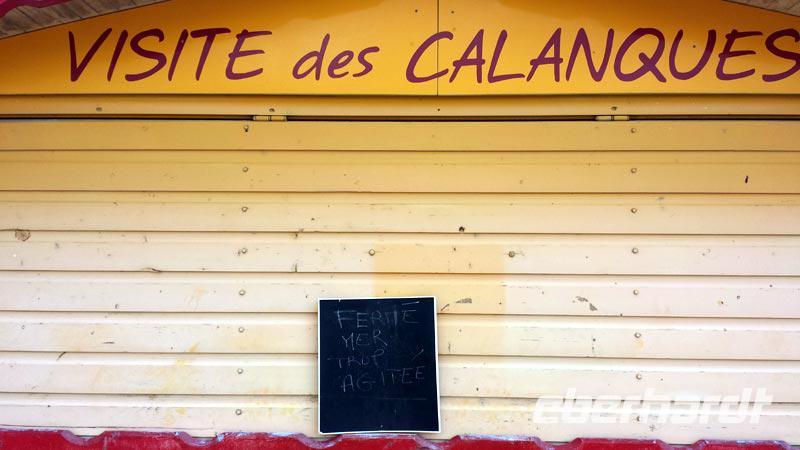 VISITE des CALANQUES
FERMÉ
MER
TROP
AGITÉE
eberhardt